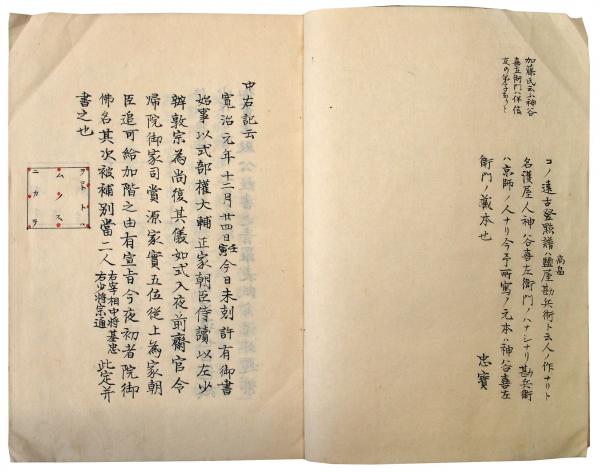 加藤氏云神谷
喜左衛門ハ保信
コノ遠古登點譜ハ鹽屋勘兵衛ト云人ノ作ナリト
高畠
名護屋人神谷喜左衛門ノハナシナリ勘兵衛
ハ京師ノ人ナリ今予所寫ノ元本ハ神谷喜左
衛門ノ藏本也
忠寶
中右記云
寛治元年十二月廿四日壬寅今日未刻許有御書
始事以式部權大輔正家朝臣侍讀以左少
辨敦宗為尚復其儀如式入夜前齋官令
帰院御家司賞源家實五位従上為家朝
臣追可給加階之由有宣旨今夜初者院御
佛名其次被補別當二人右宰相中将基忠右少将宗通此定并
書之也
ヲコトハ
ムノス
ニカテ